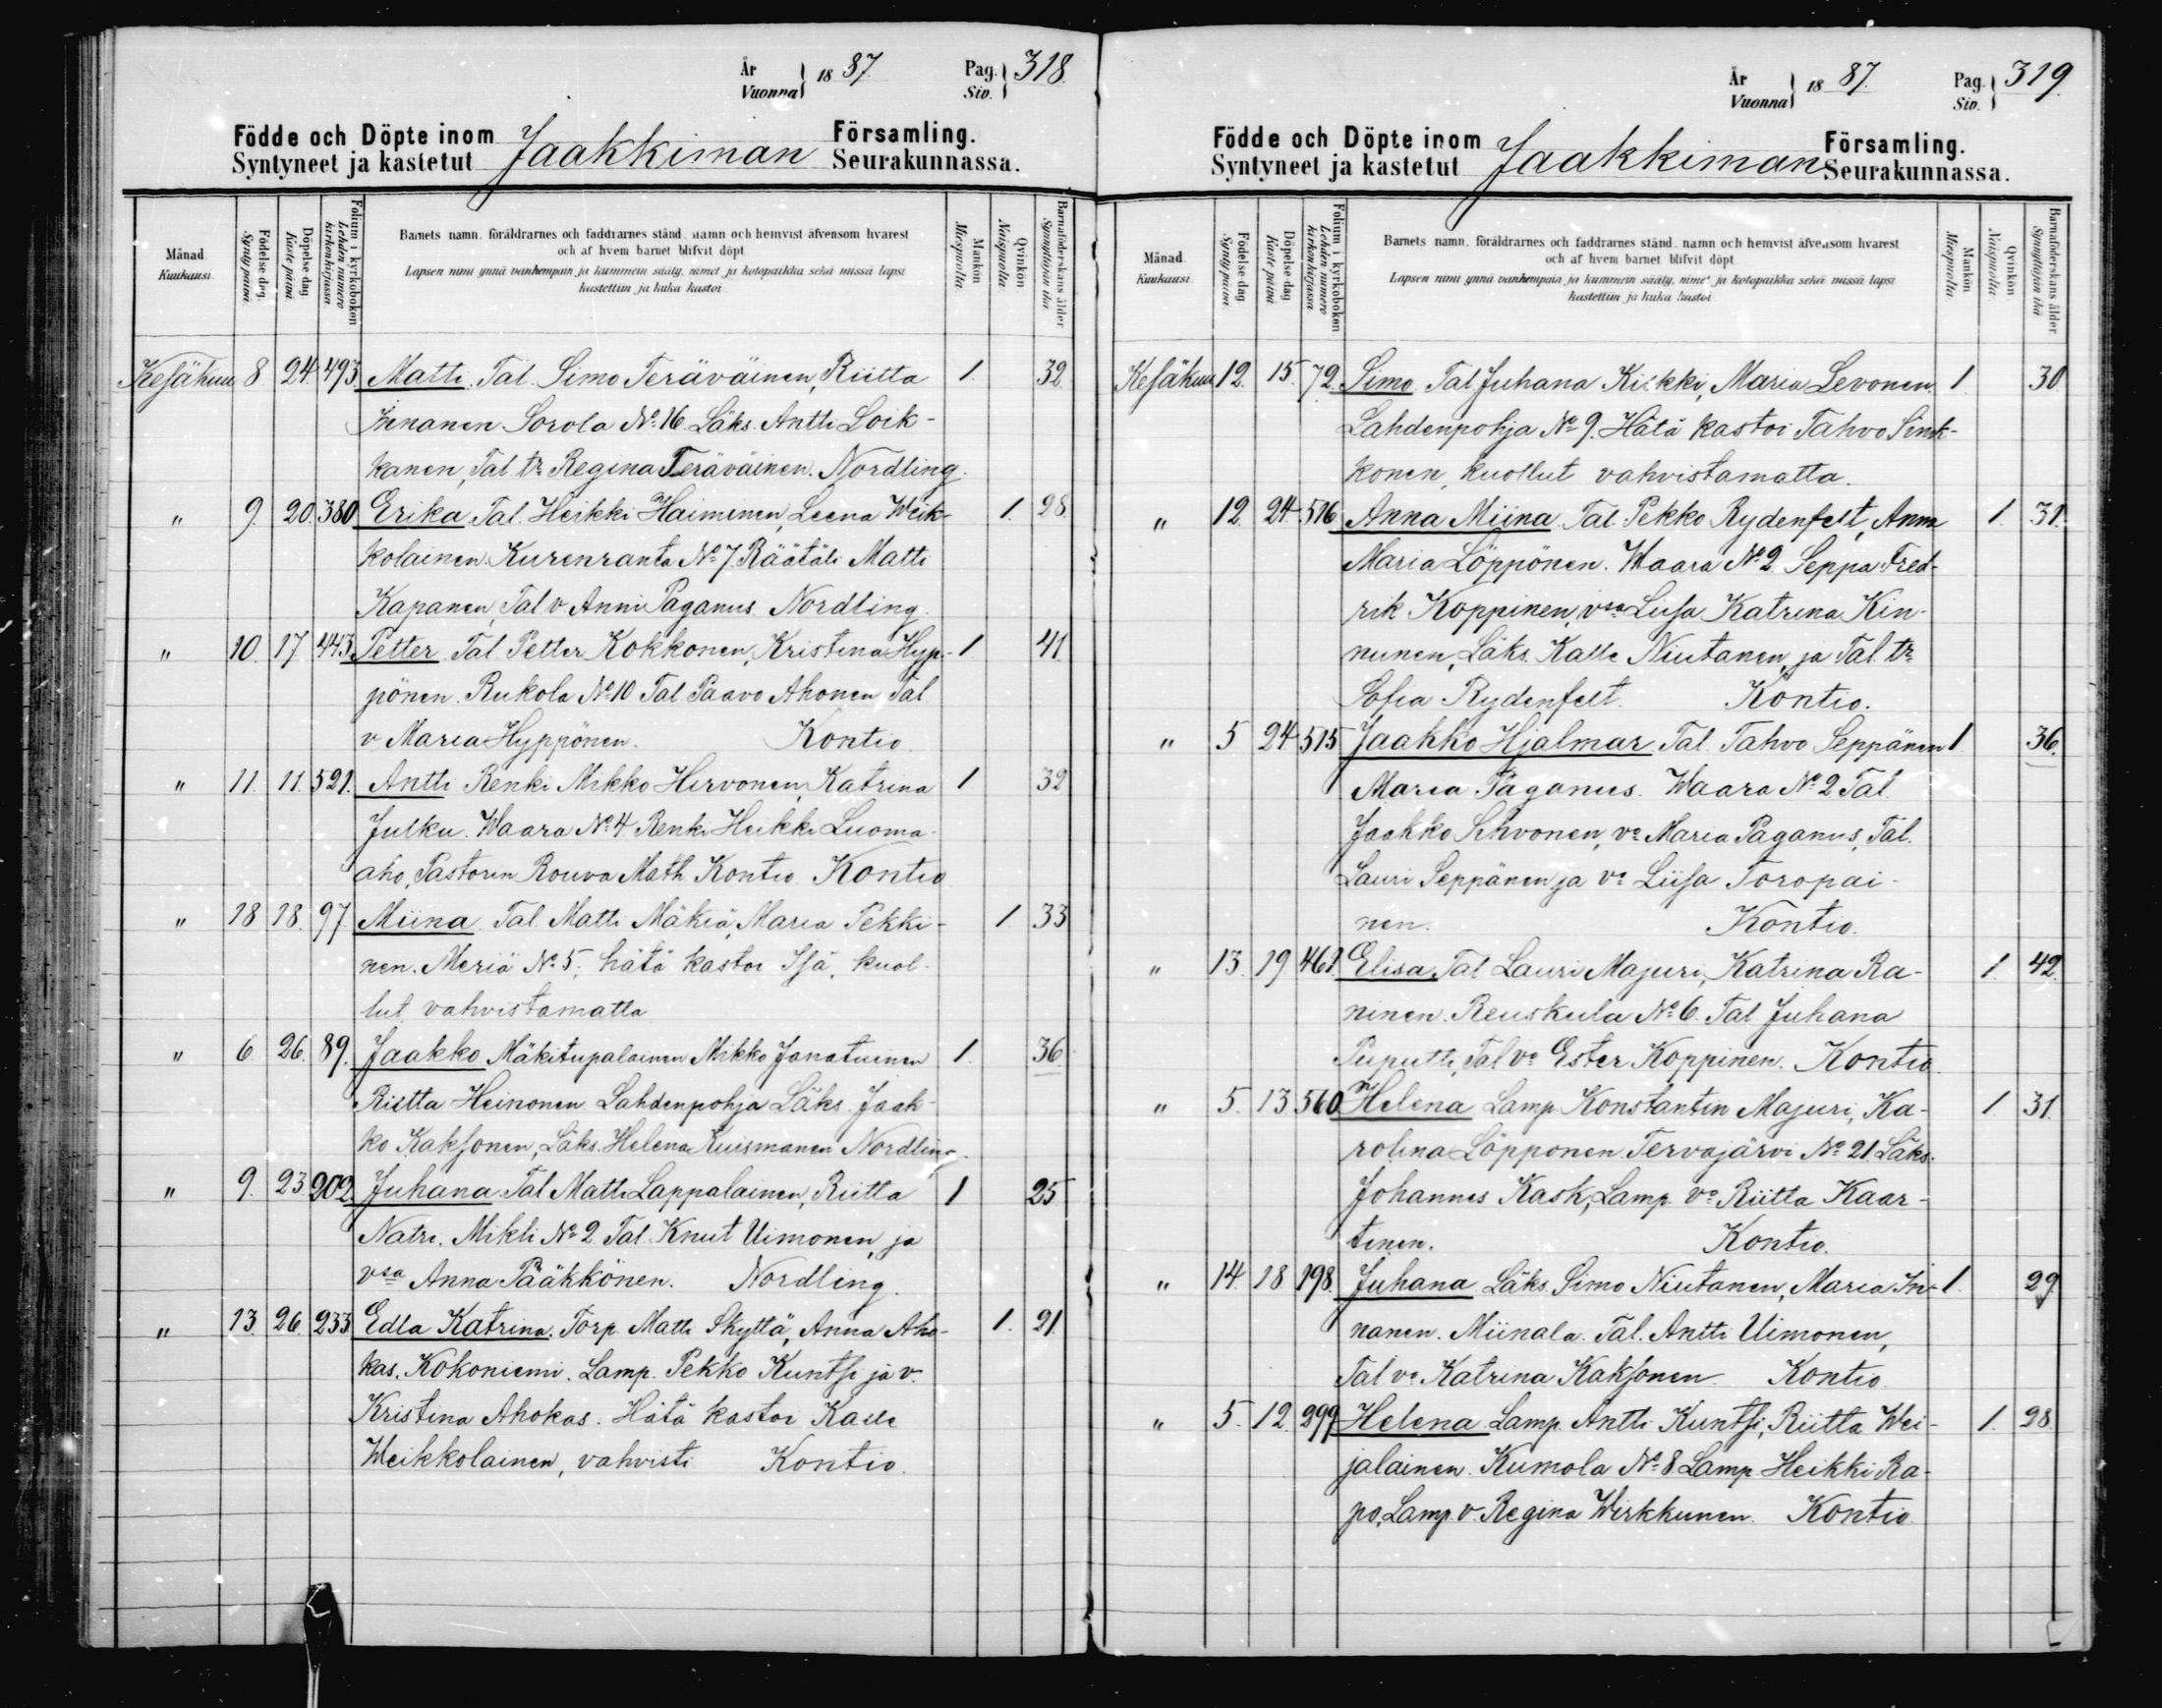 År Vuonna 18 87. Pag. Siv. 318
Födde och Döpte inom Jaakkiman Församling.
Syntyneet ja kastetut Seurakunnassa.
Månad Kuukausi
Födelse dag Synty päivä
Döpelse dag Kaste päivä
Folium i kyrkoboken Lehden numero kirkonkirjassa
Barnets namn, föräldrarnes och faddrarnes stånd, namn och hemvist äfvensom hvarest
och af hvem barnet blifvit döpt
Lapsen nimi ynnä vanhempain ja kummein sääty, nimet ja kotopaikka sekä missä lapsi
kastettiin ja kuka kastoi
Mankön Miespuolta
Qvinkön Naispuolta
Barnaföderskans ålder Synnyttäjän ikä
Kesäkuu 8 24. 493. Matti. Tal. Simo Teräväinen, Riitta 1. 32.
Innanen. Sorola No 16. Läks. Antti Loik-
kanen, Tal. tr Regina Teräväinen. Nordling.
" 9. 20. 380 Erika. Tal. Heikki Haiminen, Leena Weik- 1. 28
kolainen. Kurenranta No 7. Räätäli Matti
Kapanen, Tal v. Anni Paganus. Nordling.
" 10. 17. 443. Petter. Tal Petter Kokkonen, Kristina Hyp- 1 41.
pönen. Rukola No 10 Tal Paavo Ahonen Tal
v Maria Hyppönen. Kontio
" 11. 11. 521. Antti Renki Mikko Hirvonen, Katrina 1 32
Julku. Waara No 4 Renki Heikki Luoma-
aho, Pastorin Rouva Math. Kontio. Kontio
" 18 18. 97 Miina. Tal. Matti Mäkiä, Maria Pekki- 1. 33
nen. Meriä No 5; hätä kastoi Isä, kuol-
lut vahvistamatta
" 6. 26. 89. Jaakko Mäkitupalainen Mikko Janatuinen 1. 36.
Riitta Heinonen Lahdenpohja Läks. Jaak-
ko Kaksonen, Läks. Helena Kuismanen Nordling.
" 9. 23 202. Juhana. Tal Matti Lappalainen, Riitta 1 25
Natri. Mikli No 2 Tal. Knut Uimonen, ja
vsa Anna Pääkkönen. Nordling.
" 13. 26. 233 Edla Katrina. Torp. Matti Skyttä, Anna Aho- 1. 21.
kas. Kokoniemi. Lamp. Pekko Kuntsi ja v.
Kristina Ahokas. Hätä kastoi Kalle
Weikkolainen, vahvisti Kontio.
År Vuonna 18 87. Pag. Siv. 319.
Födde och Döpte inom Jaakkiman Församling.
Syntyneet ja kastetut Seurakunnassa.
Månad Kuukausi
Födelse dag Synty päivä
Döpelse dag Kaste päivä
Folium i kyrkoboken Lehden numero kirkonkirjassa
Barnets namn, föräldrarnes och faddrarnes stånd, namn och hemvist äfvensom hvarest
och af hvem barnet blifvit döpt
Lapsen nimi ynnä vanhempain ja kummein sääty, nimet ja kotopaikka sekä missä lapsi
kastettiin ja kuka kastoi
Mankön Miespuolta
Qvinkön Naispuolta
Barnaföderskans ålder Synnyttäjän ikä
Kesäkuu 12. 15. 72. Simo. Tal Juhana Kiikki, Maria Levonen. 1. 30
Lahdenpohja No 9. Hätä kastoi Tahvo Sink-
konen, kuollut vahvistamatta.
" 12. 24. 516 Anna Miina. Tal. Pekko Rydenfelt, Anna 1. 31.
Maria Löppönen. Waara No 2. Seppä Fred-
rik Koppinen, vsa Liisa Katrina Kin-
nunen, Läks. Kalle Niutanen, ja Tal. tr
Sofia Rydenfelt. Kontio.
" 5 24 515 Jaakko Hjalmar. Tal. Tahvo Seppänen 1. 36.
Maria Paganus. Waara No 2 Tal
Jaakko Sihvonen, vo Maria Paganus, Tal.
Lauri Seppänen ja vo Liisa Toropai-
nen. Kontio.
" 13. 19 461. Elisa. Tal Lauri Majuri, Katrina Ra- 1. 42.
ninen. Reuskula No 6. Tal Juhana
Puputti, Tal vo Ester Koppinen. Kontio.
" 5. 13 560 Helena Lamp. Konstantin Majuri, Ka- 1 31.
rolina Löpponen. Tervajärvi No 21. Läks.
Johannes Kask, Lamp. vo Riitta Kaar-
tinen. Kontio.
" 14. 18 198. Juhana Läks. Simo Niutanen, Maria In- 1. 29
nanen. Miinala. Tal. Antti Uimonen,
Tal vo Katrina Kaksonen. Kontio
" 5. 12. 299 Helena Lamp. Antti Kuntsi, Riitta Wei- 1. 28.
jalainen. Kumola No 8 Lamp. Heikki Ra-
po, Lamp. v. Regina Wirkkunen. Kontio